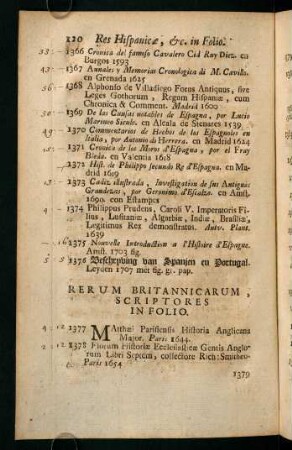 120 Res Hispanicæ, &c. in Folio.
1366 Cronica del famoso Cavalero Cid Ruy Diez. en
Burgos 1593
1367 Annales y Memorias Cronologica di M. Cavillo.
en Grenada 1625
1368 Alphonso de Villadiego Forus Antiquus, sive
Leges Gothorum, Regum Hispaniæ, cum
Chronica & Comment. Madrid 1600
1369 De las Causas notables de Espagna, por Lucio
Marineo Siculo. en Alcala de Henares 1539
1370 Commentarios de Hechos de los Espagnoles en
Italia, por Antonio de Herrera. en Madrid 1624
1371 Cronica de los Moros d'Espagna, por el Fray
Bleda. en Valencia 1618
1372 Hist. de Philippo secundo Re d'Espagna. en Ma-
drid 1619
1373 Cadiz ilustrada, Investigation de sus Antiguas
Grandezas, por Geronimo d'Escalza. en Amst.
1690. con Estampes
1374 Philippus Prudens, Caroli V. Imperatoris Fi-
lius, Lusitaniæ, Algarbiæ, Indiæ, Brasiliæ,
Legitimus Rex demonstratus. Antv. Plant.
1639
1375 Nouvelle Introduction a l'Histoire d'Espagne.
Amst. 1703 fig.
1376 Beschryving van Spanjen en Portugal.
Leyden 1707 met fig. gr. pap.
RERUM BRITANNICARUM,
SCRIPTORES
IN FOLIO.
1377 Matthæi Parisiensis Historia Angliæ
Major. Paris 1644.
1378 Florum Historiæ Ecclesiasticæ Gentis Anglo-
rum Libri Septem, collectore Rich: Smitheo.
Paris 1654
1379